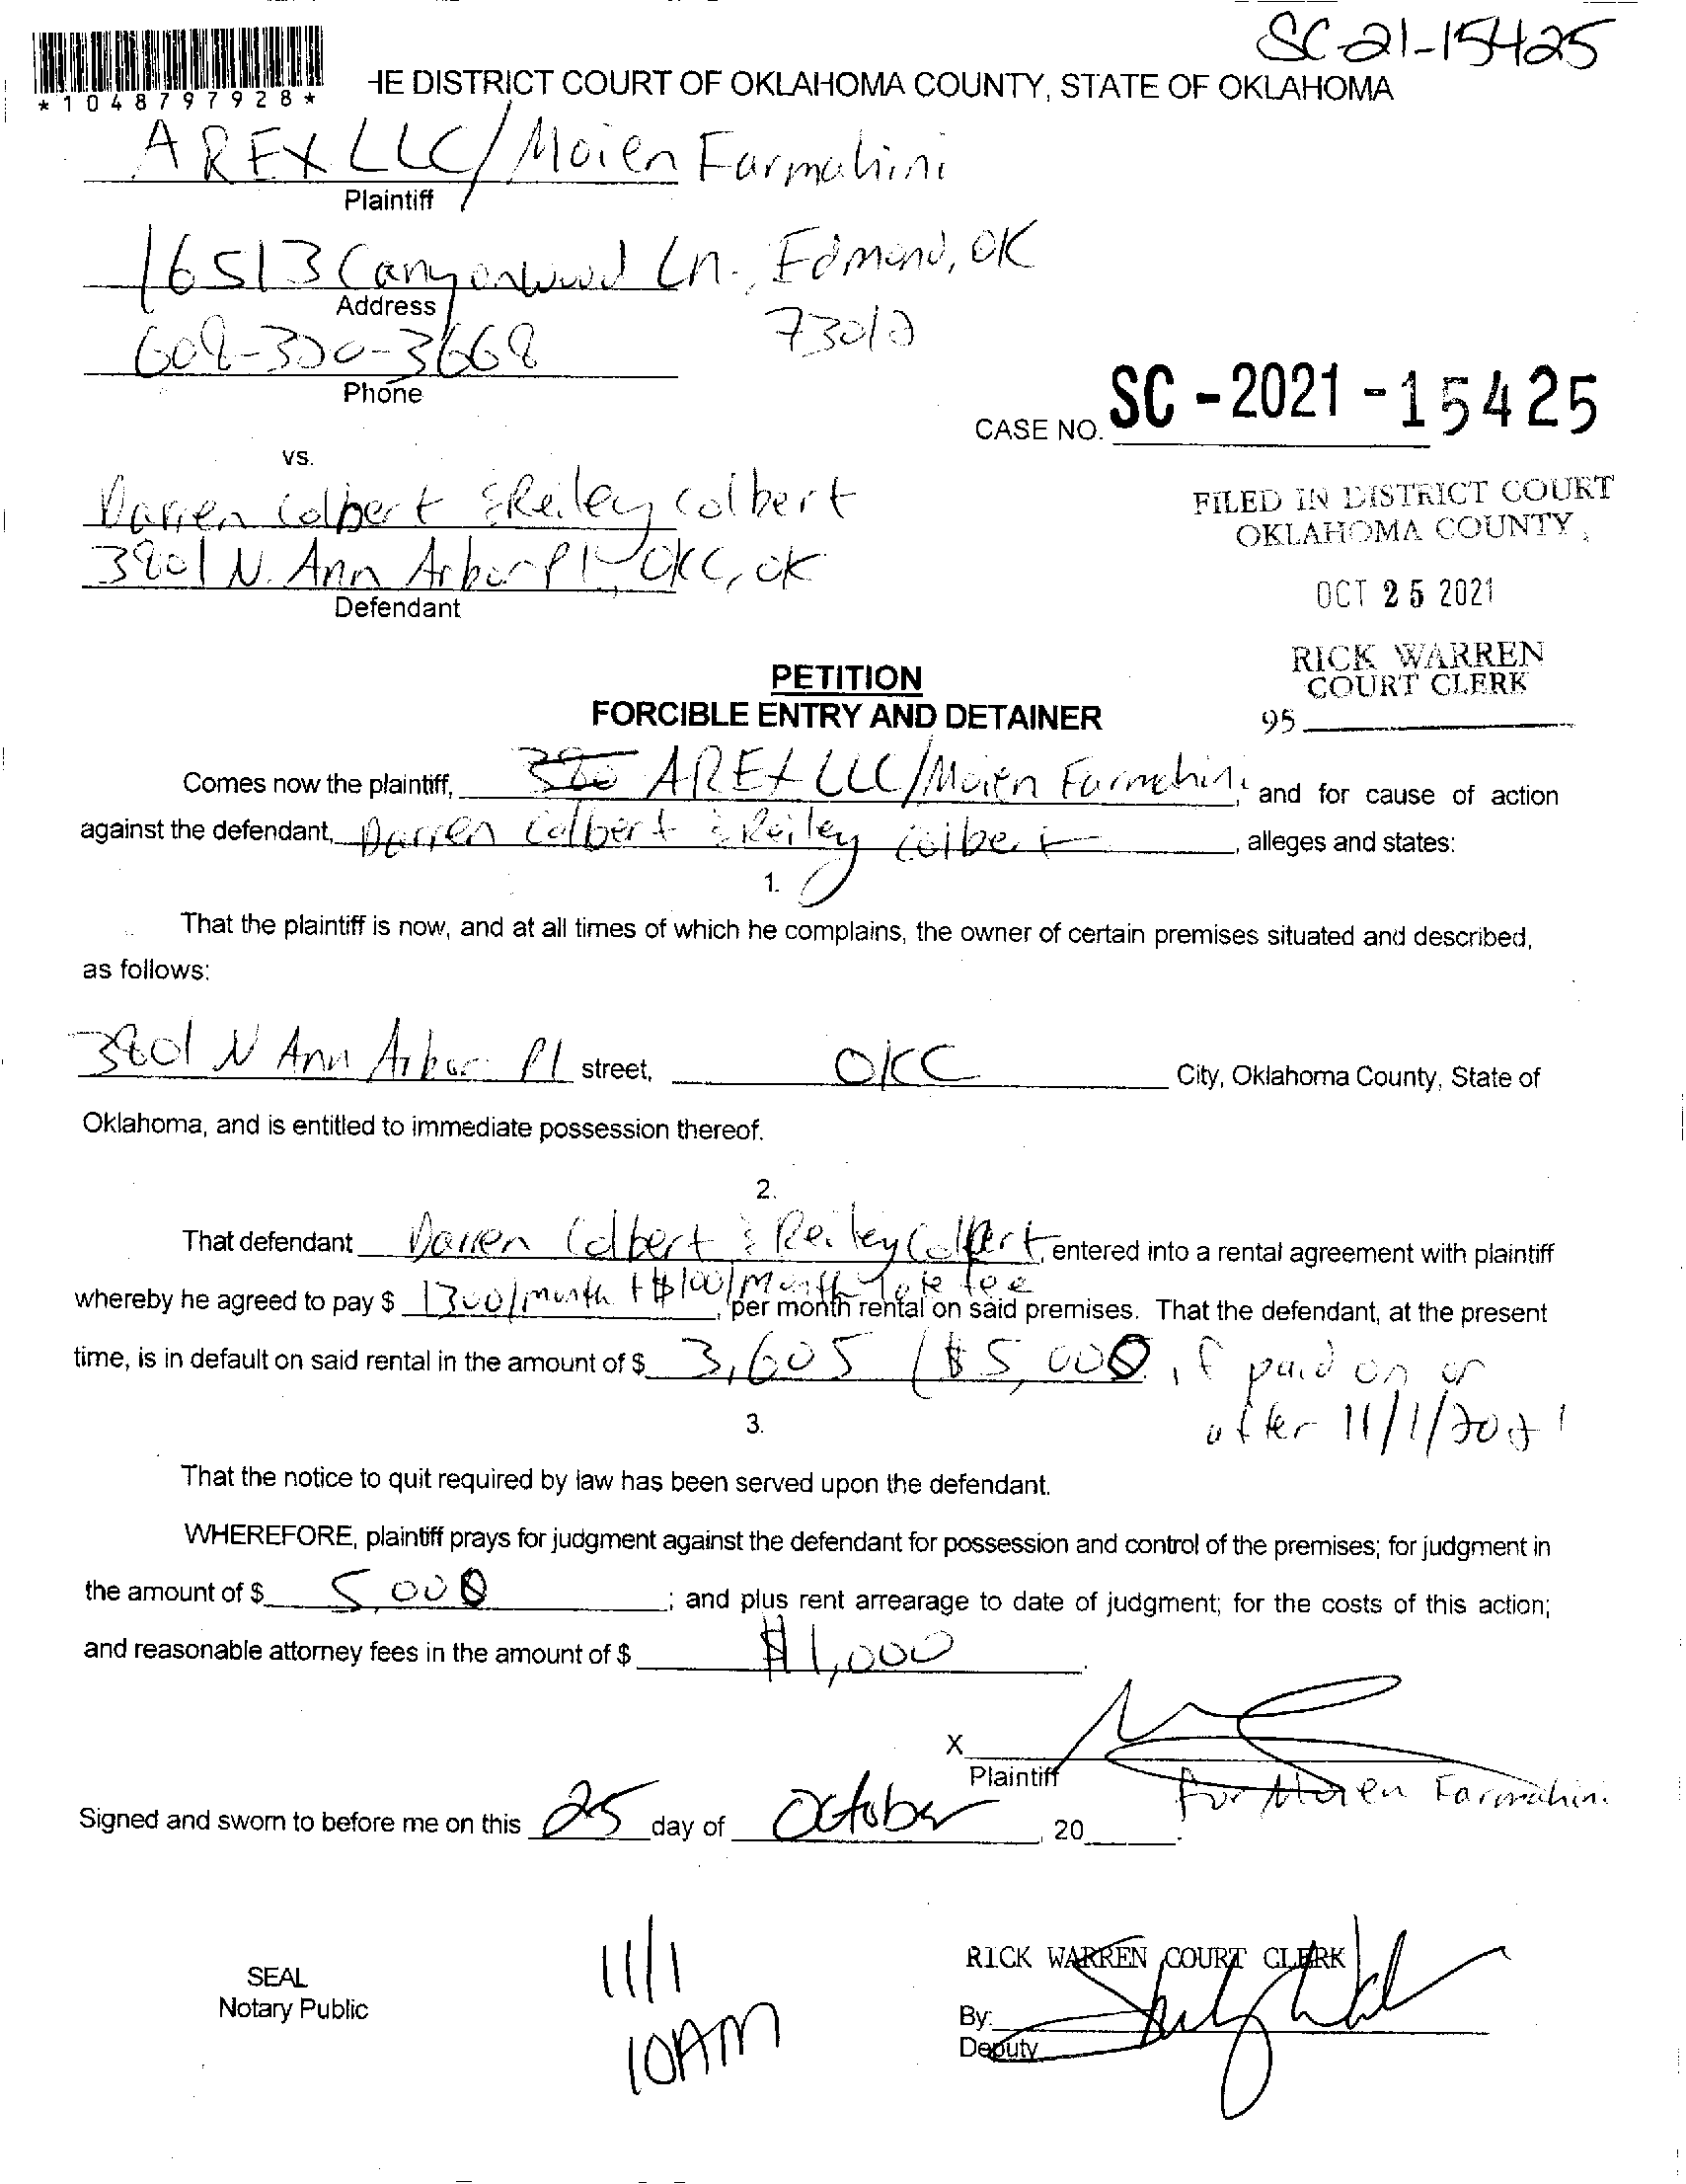 SC-21-15425
*1048797928*
HE DISTRICT COURT OF OKLAHOMA COUNTY, STATE OF OKLAHOMA
AREX LLC/Moien Farmahini
Plaintiff
16513 Canyonwood Ln., Edmond, OK
Address
73012
608-300-3668
Phone
CASE NO. SC-2021-15425
vs.
Darren Colbert & Reiley Colbert
3801 N. Ann Arbor Pl, OKC, OK
Defendant
FILED IN DISTRICT COURT
OKLAHOMA COUNTY
OCT 25 2021
RICK WARREN
COURT CLERK
95
PETITION
FORCIBLE ENTRY AND DETAINER
Comes now the plaintiff, AREX LLC/Moien Farmahini, and for cause of action
against the defendant, Darren Colbert & Reiley Colbert, alleges and states:
1.
That the plaintiff is now, and at all times of which he complains, the owner of certain premises situated and described,
as follows:
3801 N Ann Arbor Pl street, OKC City, Oklahoma County, State of
Oklahoma, and is entitled to immediate possession thereof.
2.
That defendant Darren Colbert & Reiley Colbert, entered into a rental agreement with plaintiff
whereby he agreed to pay $ 1300/month + $100/month late fee, per month rental on said premises. That the defendant, at the present
time, is in default on said rental in the amount of $ 3,605 ($5,000 if paid on or
after 11/1/2021
3.
That the notice to quit required by law has been served upon the defendant.
WHEREFORE, plaintiff prays for judgment against the defendant for possession and control of the premises; for judgment in
the amount of $ 5,000; and plus rent arrearage to date of judgment; for the costs of this action;
and reasonable attorney fees in the amount of $ $1,000.
X
Plaintiff for Moien Farmahini
Signed and sworn to before me on this 25 day of October, 20.
11/1
10AM
SEAL
Notary Public
RICK WARREN COURT CLERK
By:
Deputy